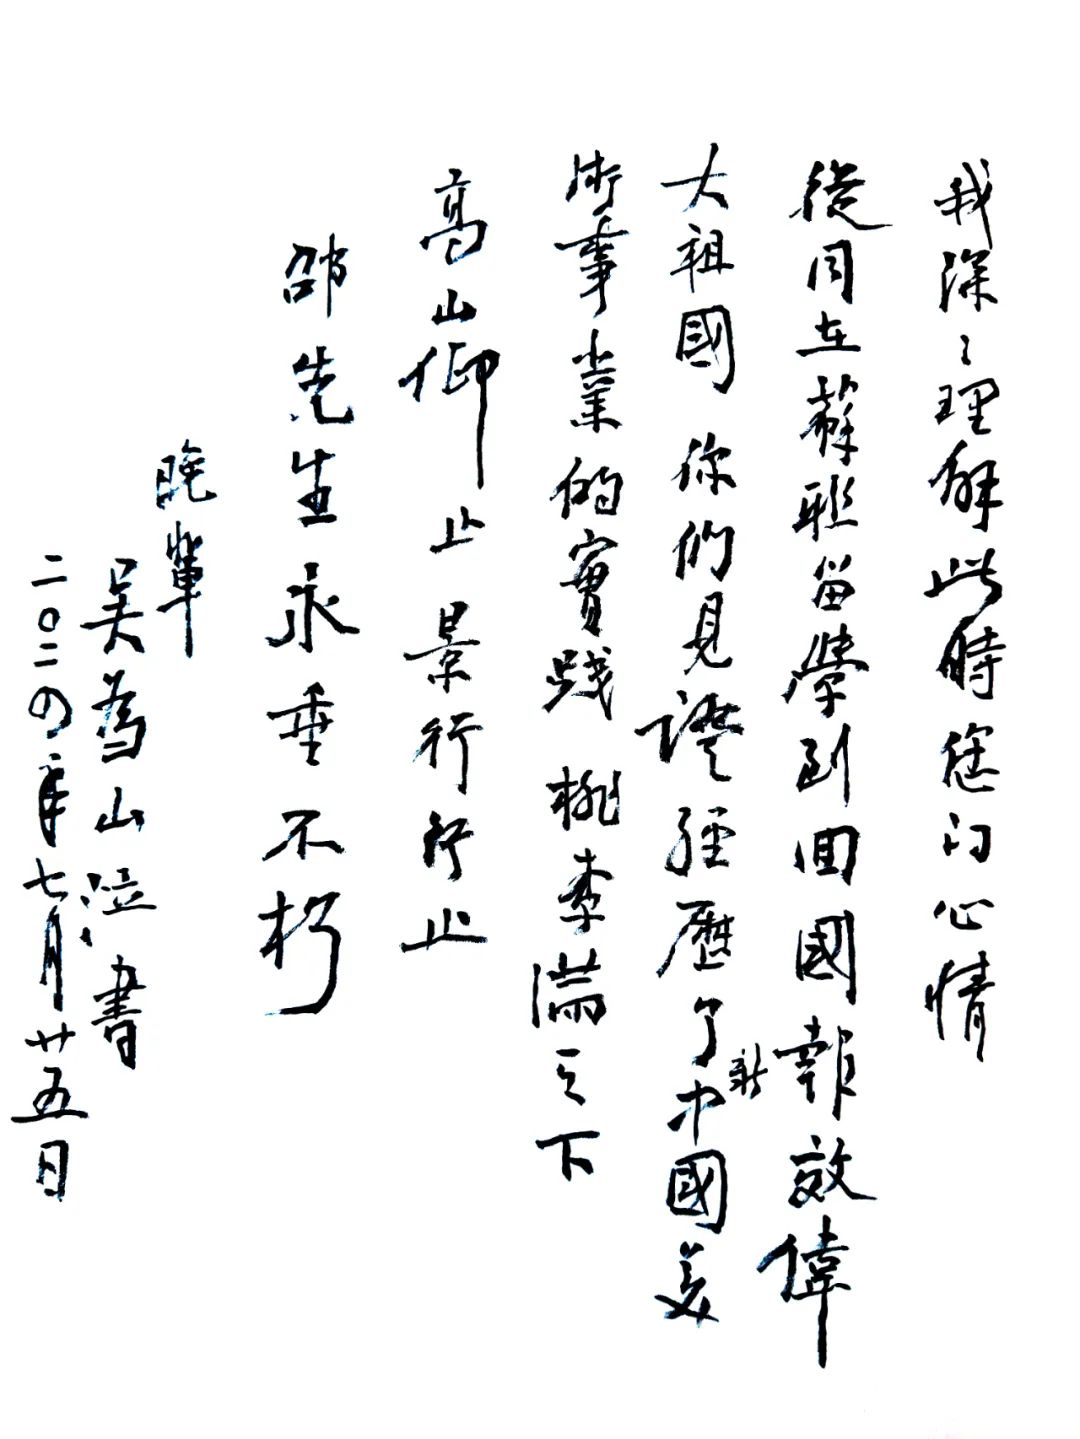 我深〻理解此時您的心情
從同在蘇聯留學到回國報效偉
大祖國 你們見證經歷了新中國美
術事業的實踐 桃李滿天下
高山仰止 景行行止
邵先生永垂不朽
晚輩
吳為山泣書
二〇二四年七月廿五日